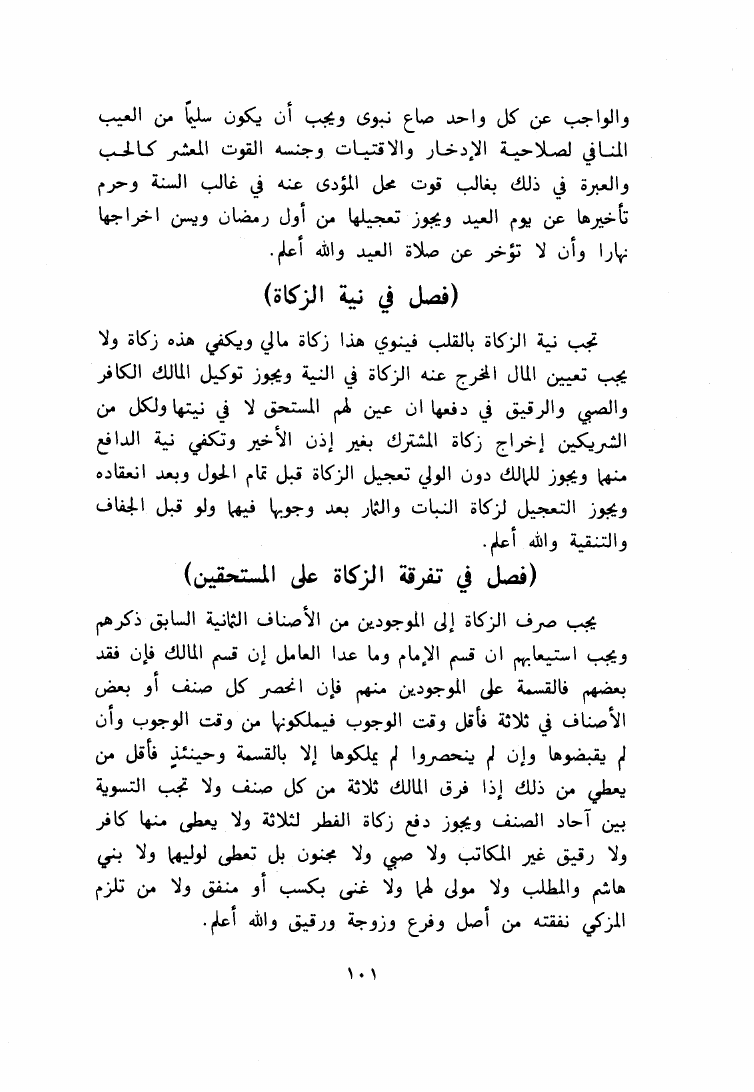 والواجب عن كل واحد صاع نبوى ويجب أن يكون سليمًا من العيب
المنافي لصلاحية الإدخار والاقتيات وجنسه القوت المعشر كالحب
والعبرة في ذلك بغالب قوت محل المؤدى عنه في غالب السنة وحرم
تأخيرها عن يوم العيد ويجوز تعجيلها من أول رمضان ويسن اخراجها
نهارا وأن لا تؤخر عن صلاة العيد والله أعلم.
(فصل في نية الزكاة)
تجب نية الزكاة بالقلب فينوي هذا زكاة مالي ويكفي هذه زكاة ولا
يجب تعيين المال المخرج عنه الزكاة في النية ويجوز توكيل المالك الكافر
والصبي والرقيق في دفعها ان عين لهم المستحق لا في نيتها ولكل من
الشريكين إخراج زكاة المشترك بغير إذن الأخير وتكفي نية الدافع
منهما ويجوز للمالك دون الولي تعجيل الزكاة قبل تمام الحول وبعد انعقاده
ويجوز التعجيل لزكاة النبات والثمار بعد وجوبها فيهما ولو قبل الجفاف
والتنقية والله أعلم.
(فصل في تفرقة الزكاة على المستحقين)
يجب صرف الزكاة إلى الموجودين من الأصناف الثمانية السابق ذكرهم
ويجب استيعابهم ان قسم الإمام وما عدا العامل إن قسم المالك فإن فقد
بعضهم فالقسمة على الموجودين منهم فإن انحصر كل صنف أو بعض
الأصناف في ثلاثة فأقل وقت الوجوب فيملكونها من وقت الوجوب وأن
لم يقبضوها وإن لم ينحصروا لم يملكوها إلا بالقسمة وحينئذٍ فأقل من
يعطي من ذلك إذا فرق المالك ثلاثة من كل صنف ولا تجب التسوية
بين آحاد الصنف ويجوز دفع زكاة الفطر لثلاثة ولا يعطى منها كافر
ولا رقيق غير المكاتب ولا صبي ولا مجنون بل تعطى لوليهما ولا بني
هاشم والمطلب ولا مولى لهما ولا غنى بكسب أو منفق ولا من تلزم
المزكي نفقته من أصل وفرع وزوجة ورقيق والله أعلم.
١٠١